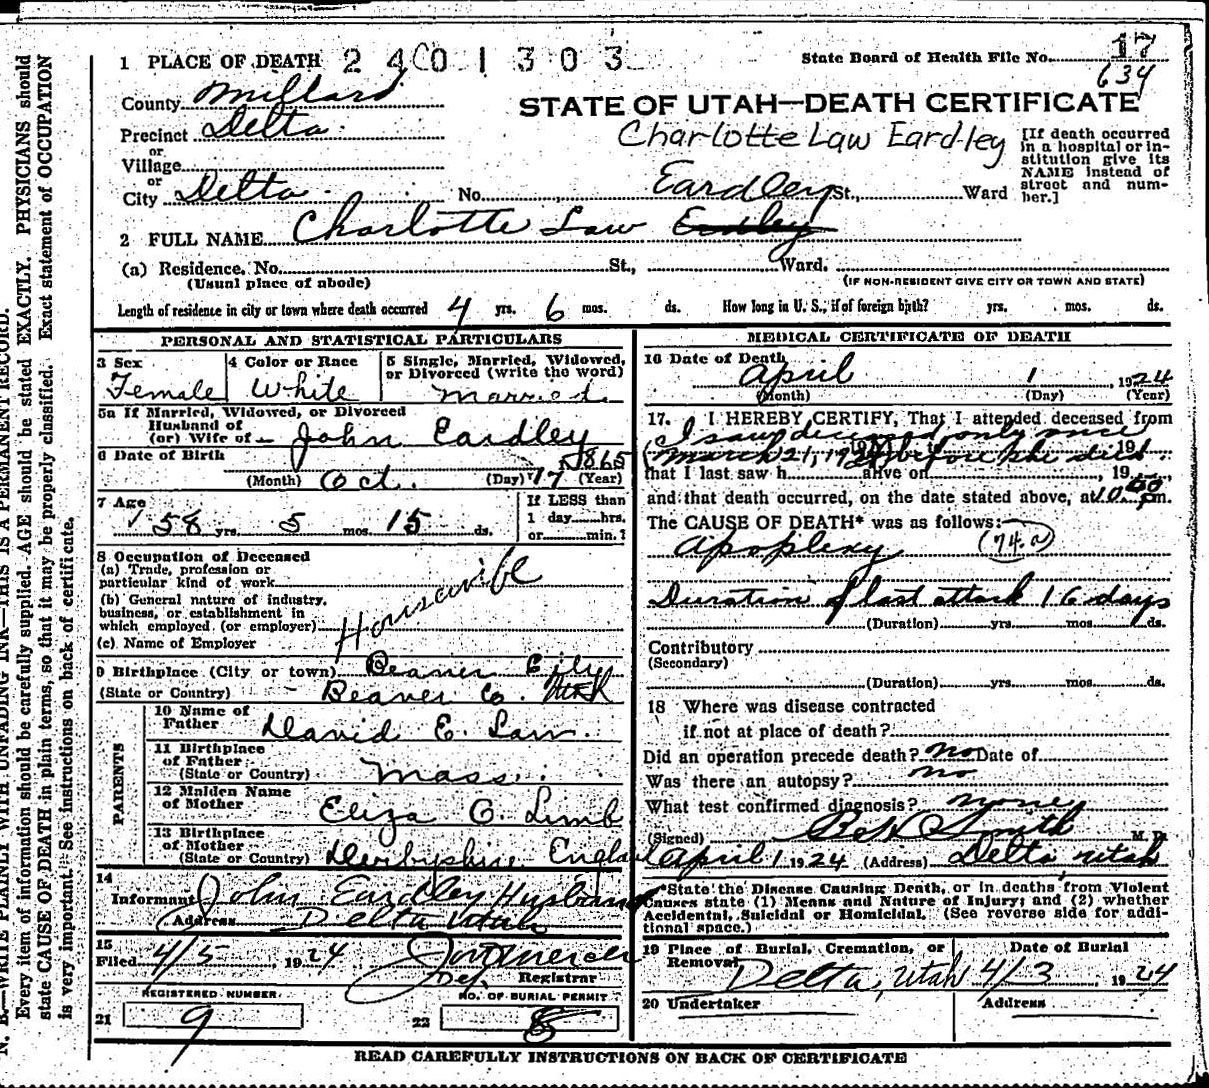 1 PLACE OF DEATH 2 4 0 1 3 0 3
State Board of Health File No. 17
634
County Millard
STATE OF UTAH—DEATH CERTIFICATE
Precinct Delta
Charlotte Law Eardley
or
Village
or
City Delta No. Eardley St., Ward
[If death occurred
in a hospital or in-
stitution give its
NAME instead of
street and num-
ber.]
2 FULL NAME Charlotte Law Eardley
(a) Residence. No. St., Ward.
(Usual place of abode) (IF NON-RESIDENT GIVE CITY OR TOWN AND STATE)
Length of residence in city or town where death occurred 4 yrs. 6 mos. ds. How long in U. S., if of foreign birth? yrs. mos. ds.
PERSONAL AND STATISTICAL PARTICULARS
3 Sex 4 Color or Race 5 Single, Married, Widowed,
or Divorced (write the word)
Female White Married
5a If Married, Widowed, or Divorced
Husband of
(or) Wife of John Eardley
6 Date of Birth 1865
(Month) Oct. (Day) 17 (Year)
7 Age If LESS than
58 yrs. 5 mos. 15 ds. 1 day hrs.
or min.?
8 Occupation of Deceased
(a) Trade, profession or
particular kind of work Housewife
(b) General nature of industry,
business, or establishment in
which employed (or employer)
(c) Name of Employer
9 Birthplace (City or town) Beaver City
(State or Country) Beaver Co. Utah
PARENTS
10 Name of
Father David E. Law
11 Birthplace
of Father
(State or Country) Mass.
12 Maiden Name
of Mother Eliza C. Limb
13 Birthplace
of Mother
(State or Country) Derbyshire England
14
Informant John Eardley Husband
(Address Delta Utah
15
Filed 4/5 1924
Registrar
REGISTERED NUMBER. NO. OF BURIAL PERMIT
21 9 22 8
MEDICAL CERTIFICATE OF DEATH
16 Date of Death April 1 1924
(Month) (Day) (Year)
17. I HEREBY CERTIFY, That I attended deceased from
I saw deceased only once
(March 21, 1924) before she died.
that I last saw h alive on , 19
and that death occurred, on the date stated above, at 10.50 pm.
The CAUSE OF DEATH* was as follows:
Apoplexy (74.a)
Duration of last attack 16 days
(Duration) yrs. mos. ds.
Contributory
(Secondary)
(Duration) yrs. mos. ds.
18 Where was disease contracted
if not at place of death?
Did an operation precede death? No Date of
Was there an autopsy? No
What test confirmed diagnosis?
(Signed) Smith M. D.
April 1 1924 (Address) Delta Utah
*State the Disease Causing Death, or in deaths from Violent
Causes state (1) Means and Nature of Injury; and (2) whether
Accidental, Suicidal or Homicidal. (See reverse side for addi-
tional space.)
19 Place of Burial, Cremation, or Date of Burial
Removal Delta, Utah 4/3 1924
20 Undertaker Address
READ CAREFULLY INSTRUCTIONS ON BACK OF CERTIFICATE
N. B.—WRITE PLAINLY WITH UNFADING INK—THIS IS A PERMANENT RECORD.
Every item of information should be carefully supplied. AGE should be stated EXACTLY. PHYSICIANS should
state CAUSE OF DEATH in plain terms, so that it may be properly classified. Exact statement of OCCUPATION
is very important. See instructions on back of certificate.